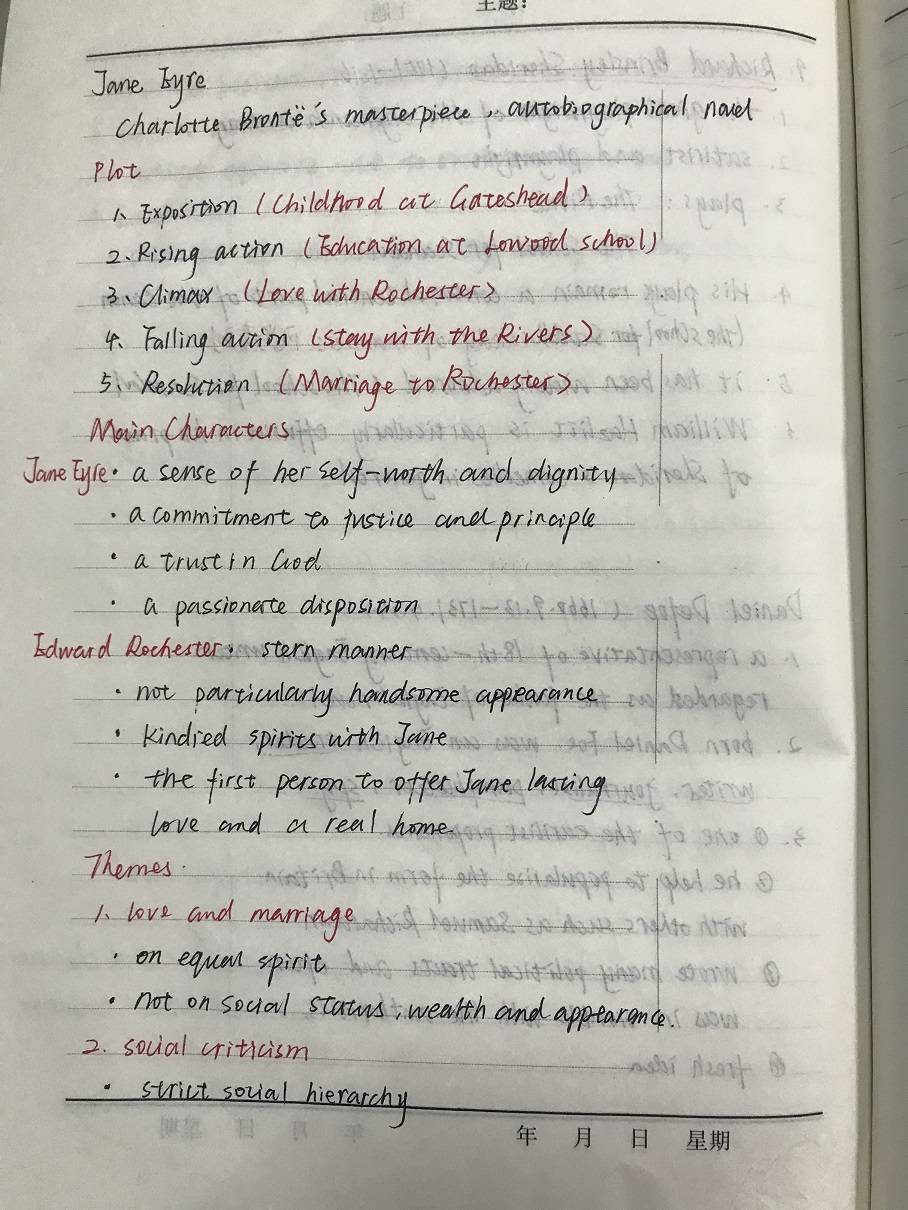 主题:
Jane Eyre
Charlotte Brontë's masterpiece, autobiographical novel
Plot
1、Exposition (Childhood at Gateshead)
2、Rising action (Education at Lowood school)
3、Climax (Love with Rochester)
4、Falling action (stay with the Rivers)
5、Resolution (Marriage to Rochester)
Main Characters
Jane Eyre· a sense of her self-worth and dignity
· a commitment to justice and principle
· a trust in God
· a passionate disposition
Edward Rochester· stern manner
· not particularly handsome appearance
· kindred spirits with Jane
· the first person to offer Jane lasting
love and a real home
Themes
1. love and marriage
· on equal spirit
· not on social status, wealth and appearance.
2. social criticism
· strict social hierarchy
年 月 日 星期